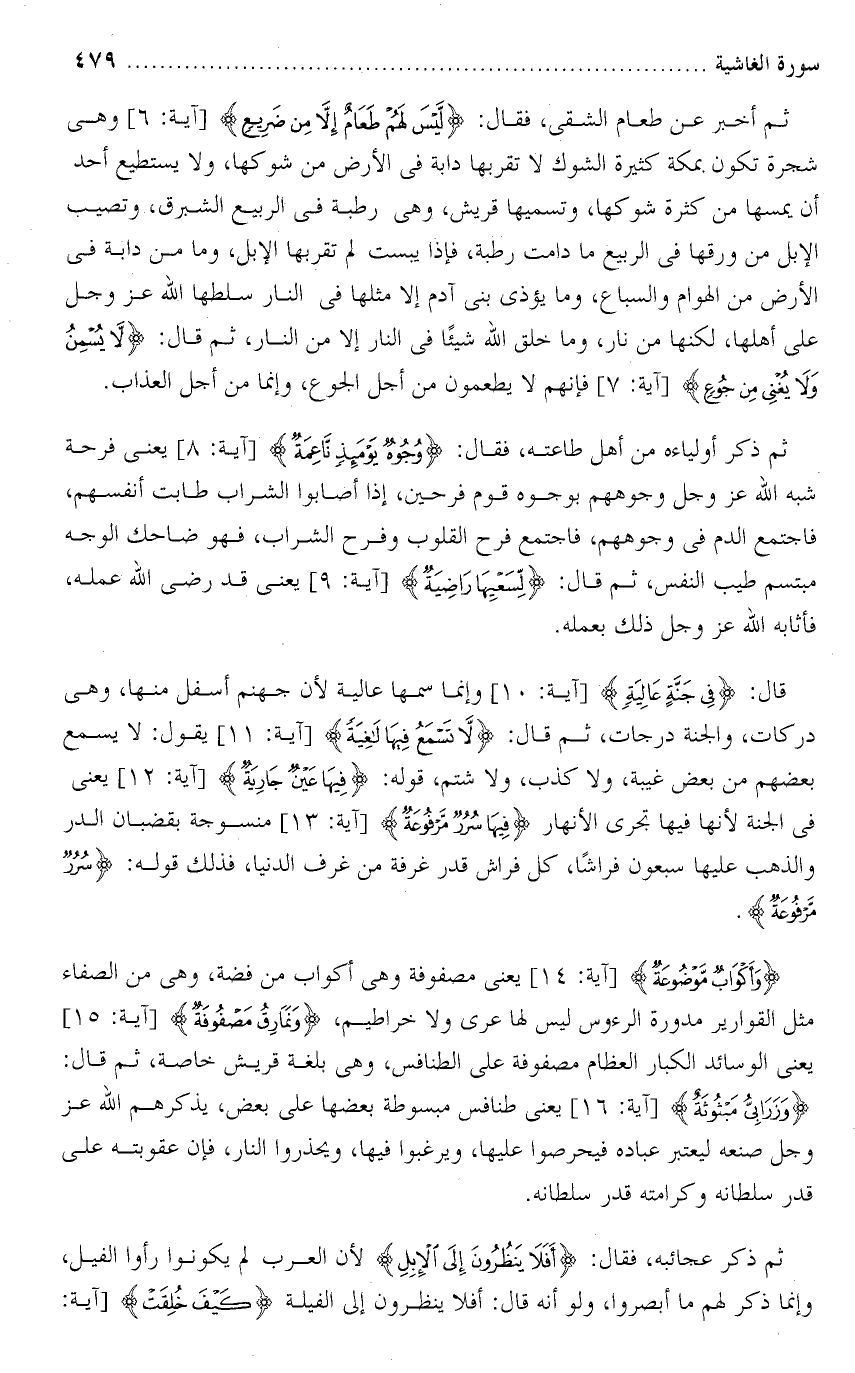 سورة الغاشية ........................................................................ ٤٧٩
ثم أخبر عن طعام الشقى، فقال: ﴿لَّيْسَ لَهُمْ طَعَامٌ إِلَّا مِن ضَرِيعٍ﴾ [آية: ٦] وهى
شجرة تكون بمكة كثيرة الشوك لا تقربها دابة فى الأرض من شوكها، ولا يستطيع أحد
أن يمسها من كثرة شوكها، وتسميها قريش، وهى رطبة فى الربيع الشبرق، وتصيب
الإبل من ورقها فى الربيع ما دامت رطبة، فإذا يبست لم تقربها الإبل، وما من دابة فى
الأرض من الهوام والسباع، وما يؤذى بنى آدم إلا مثلها فى النار سلطها الله عز وجل
على أهلها، لكنها من نار، وما خلق الله شيئًا فى النار إلا من النار، ثم قال: ﴿لَّا يُسْمِنُ
وَلَا يُغْنِى مِن جُوعٍ﴾ [آية: ٧] فإنهم لا يطعمون من أجل الجوع، وإنما من أجل العذاب.
ثم ذكر أولياءه من أهل طاعته، فقال: ﴿وُجُوهٌ يَوْمَئِذٍ نَّاعِمَةٌ﴾ [آية: ٨] يعنى فرحة
شبه الله عز وجل وجوههم بوجوه قوم فرحين، إذا أصابوا الشراب طابت أنفسهم،
فاجتمع الدم فى وجوههم، فاجتمع فرح القلوب وفرح الشراب، فهو ضاحك الوجه
مبتسم طيب النفس، ثم قال: ﴿لِّسَعْيِهَا رَاضِيَةٌ﴾ [آية: ٩] يعنى قد رضى الله عمله،
فأثابه الله عز وجل ذلك بعمله.
قال: ﴿فِى جَنَّةٍ عَالِيَةٍ﴾ [آية: ١٠] وإنما سمها عالية لأن جهنم أسفل منها، وهى
دركات، والجنة درجات، ثم قال: ﴿لَّا تَسْمَعُ فِيهَا لَٰغِيَةً﴾ [آية: ١١] يقول: لا يسمع
بعضهم من بعض غيبة، ولا كذب، ولا شتم، قوله: ﴿فِيهَا عَيْنٌ جَارِيَةٌ﴾ [آية: ١٢] يعنى
فى الجنة لأنها فيها تجرى الأنهار ﴿فِيهَا سُرُرٌ مَّرْفُوعَةٌ﴾ [آية: ١٣] منسوجة بقضبان الدر
والذهب عليها سبعون فراشًا، كل فراش قدر غرفة من غرف الدنيا، فذلك قوله: ﴿سُرُرٌ
مَّرْفُوعَةٌ﴾ .
﴿وَأَكْوَابٌ مَّوْضُوعَةٌ﴾ [آية: ١٤] يعنى مصفوفة وهى أكواب من فضة، وهى من الصفاء
مثل القوارير مدورة الرءوس ليس لها عرى ولا خراطيم، ﴿وَنَمَارِقُ مَصْفُوفَةٌ﴾ [آية: ١٥]
يعنى الوسائد الكبار العظام مصفوفة على الطنافس، وهى بلغة قريش خاصة، ثم قال:
﴿وَزَرَابِىُّ مَبْثُوثَةٌ﴾ [آية: ١٦] يعنى طنافس مبسوطة بعضها على بعض، يذكرهم الله عز
وجل صنعه ليعتبر عباده فيحرصوا عليها، ويرغبوا فيها، ويحذروا النار، فإن عقوبته على
قدر سلطانه وكرامته قدر سلطانه.
ثم ذكر عجائبه، فقال: ﴿أَفَلَا يَنظُرُونَ إِلَى ٱلْإِبِلِ﴾ لأن العرب لم يكونوا رأوا الفيل،
وإنما ذكر لهم ما أبصروا، ولو أنه قال: أفلا ينظرون إلى الفيلة ﴿كَيْفَ خُلِقَتْ﴾ [آية: